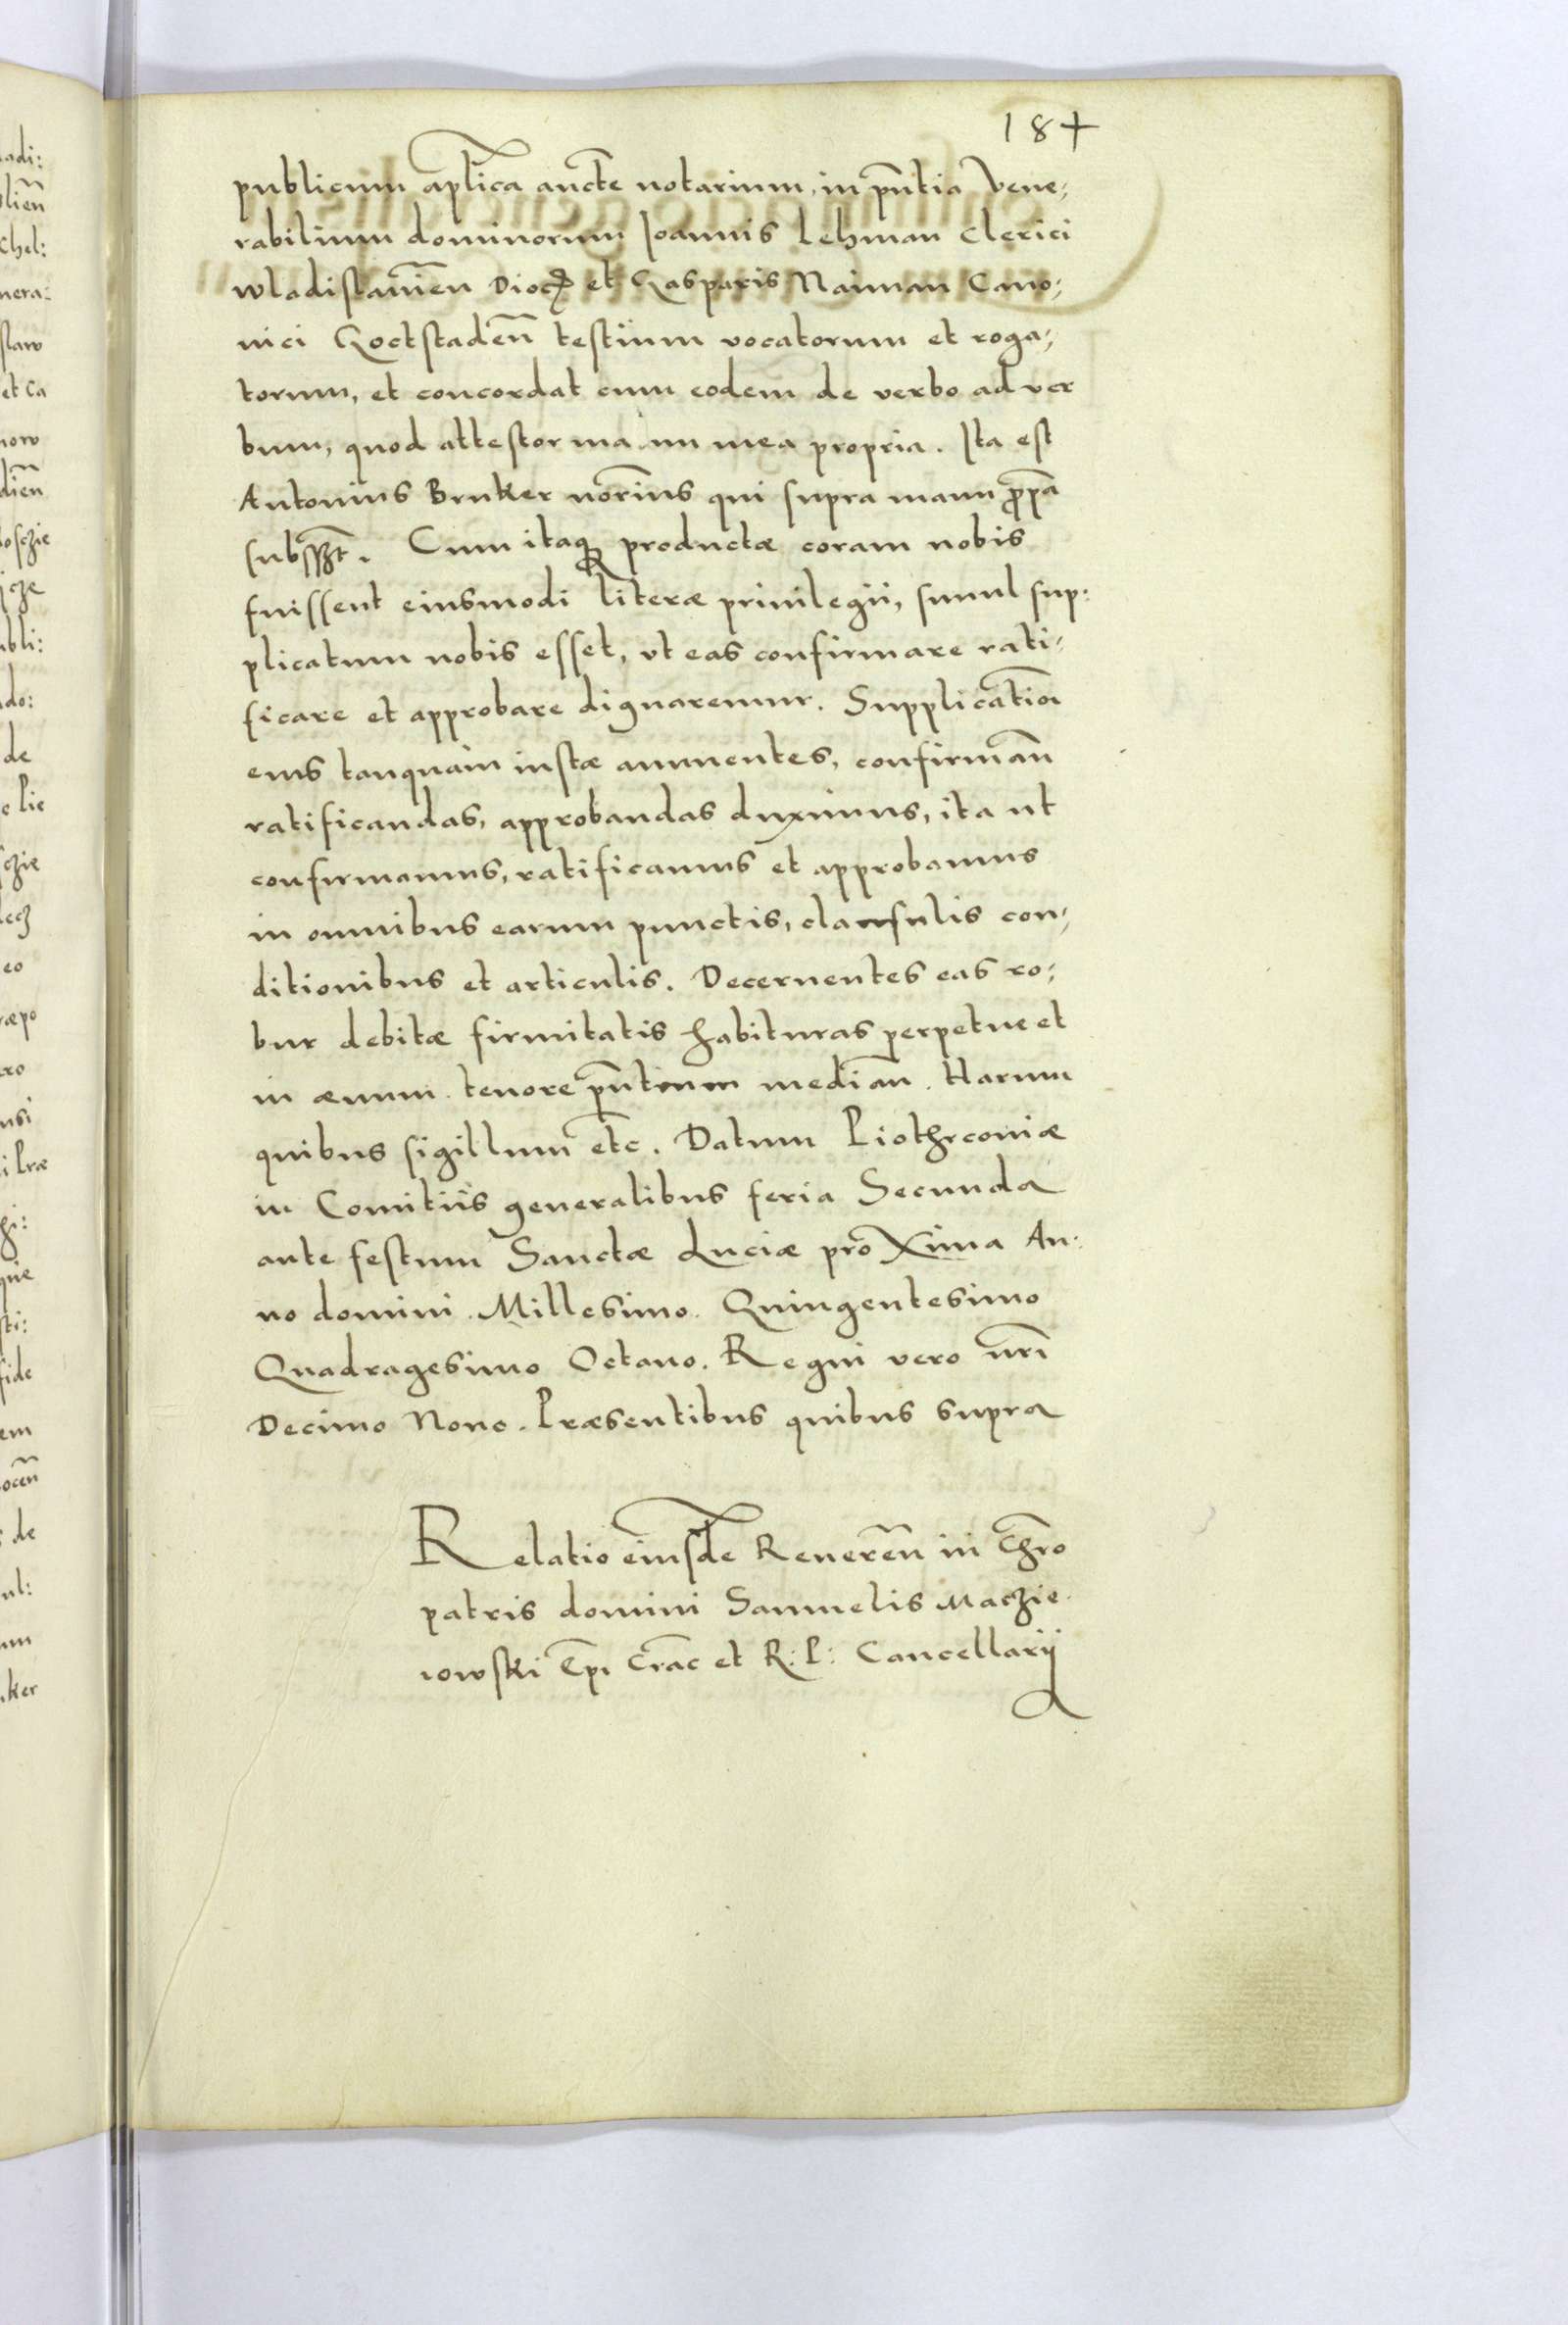 184
publicum aplica aucte notarium, in pntia Vene,
rabilium dominorum Ioannis Lehman Clerici
wladislavien Dioc et Gasparis Naiman Cano,
nici Goctstaden testium vocatorum et roga,
torum, et concordat cum eodem de verbo ad ver
bum, quod attestor ma nu mea propria. Ita est
Antonius Bruker norius qui supra manu propa
subsszt. Cum itaq productæ coram nobis
fuissent eiusmodi literæ privilegii, simul sup:
plicatum nobis esset, vt eas confirmare rati,
ficare et approbare dignaremur. Supplication
eius tanquam iustæ annuentes, confirman
ratificandas, approbandas duximus, ita ut
confirmamus, ratificamus et approbamus
in omnibus earum punctis, clausulis con,
ditionibus et articulis. Decernentes eas ro,
bur debitæ firmitatis habituras perpetue et
in ævum. tenore pntium median. Harum
quibus sigillum etc. Datum Piothrcoviæ
in Comitiis generalibus feria Secunda
ante festum Sanctæ Luciæ proxima An:
no domini. Millesimo. Quingentesimo
Quadragesimo Octavo. Regni vero nri
Decimo Nono. Præsentibus quibus supra
Relatio eiusde Reveren in Chro
patris domini Samuelis Maczie
iowski Epi Crac et R: P: Cancellarij